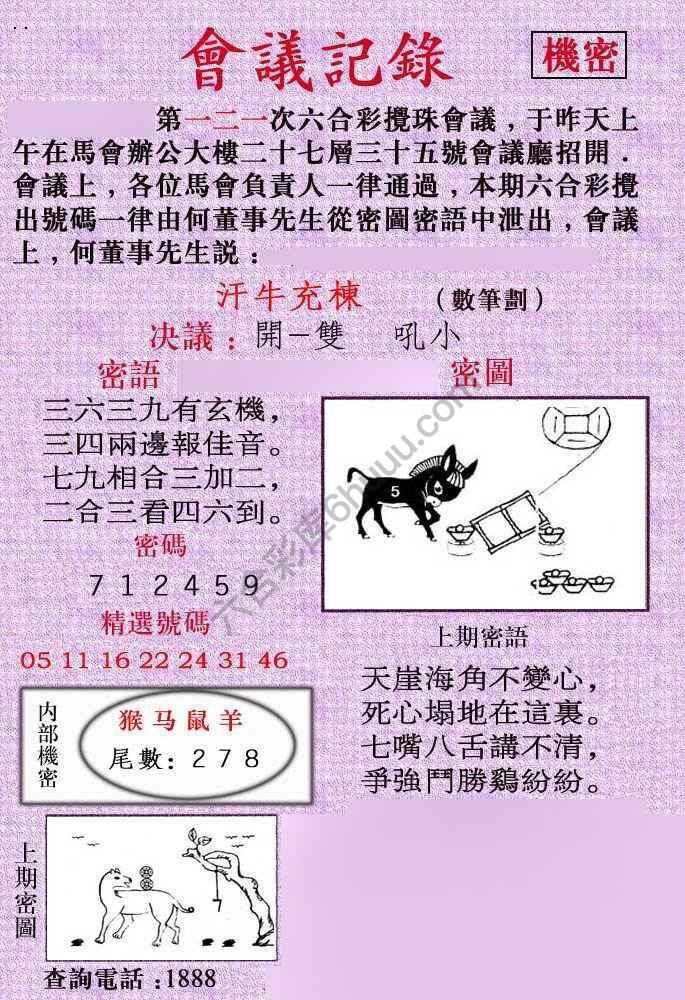 會議記錄
機密
第一二一次六合彩攪珠會議，于昨天上
午在馬會辦公大樓二十七層三十五號會議廳招開．
會議上，各位馬會負責人一律通過，本期六合彩攪
出號碼一律由何董事先生從密圖密語中泄出，會議
上，何董事先生説：
汗牛充棟 （數筆劃）
决議：開－雙 吼小
密語
密圖
三六三九有玄機，
三四兩邊報佳音。
七九相合三加二，
二合三看四六到。
密碼
7 1 2 4 5 9
精選號碼
05 11 16 22 24 31 46
5
六合彩库6huuu.com
内部機密
猴马鼠羊
尾數：2 7 8
上期密語
天崖海角不變心，
死心塌地在這裏。
七嘴八舌講不清，
爭強鬥勝鷄紛紛。
上期密圖
7
查詢電話：1888